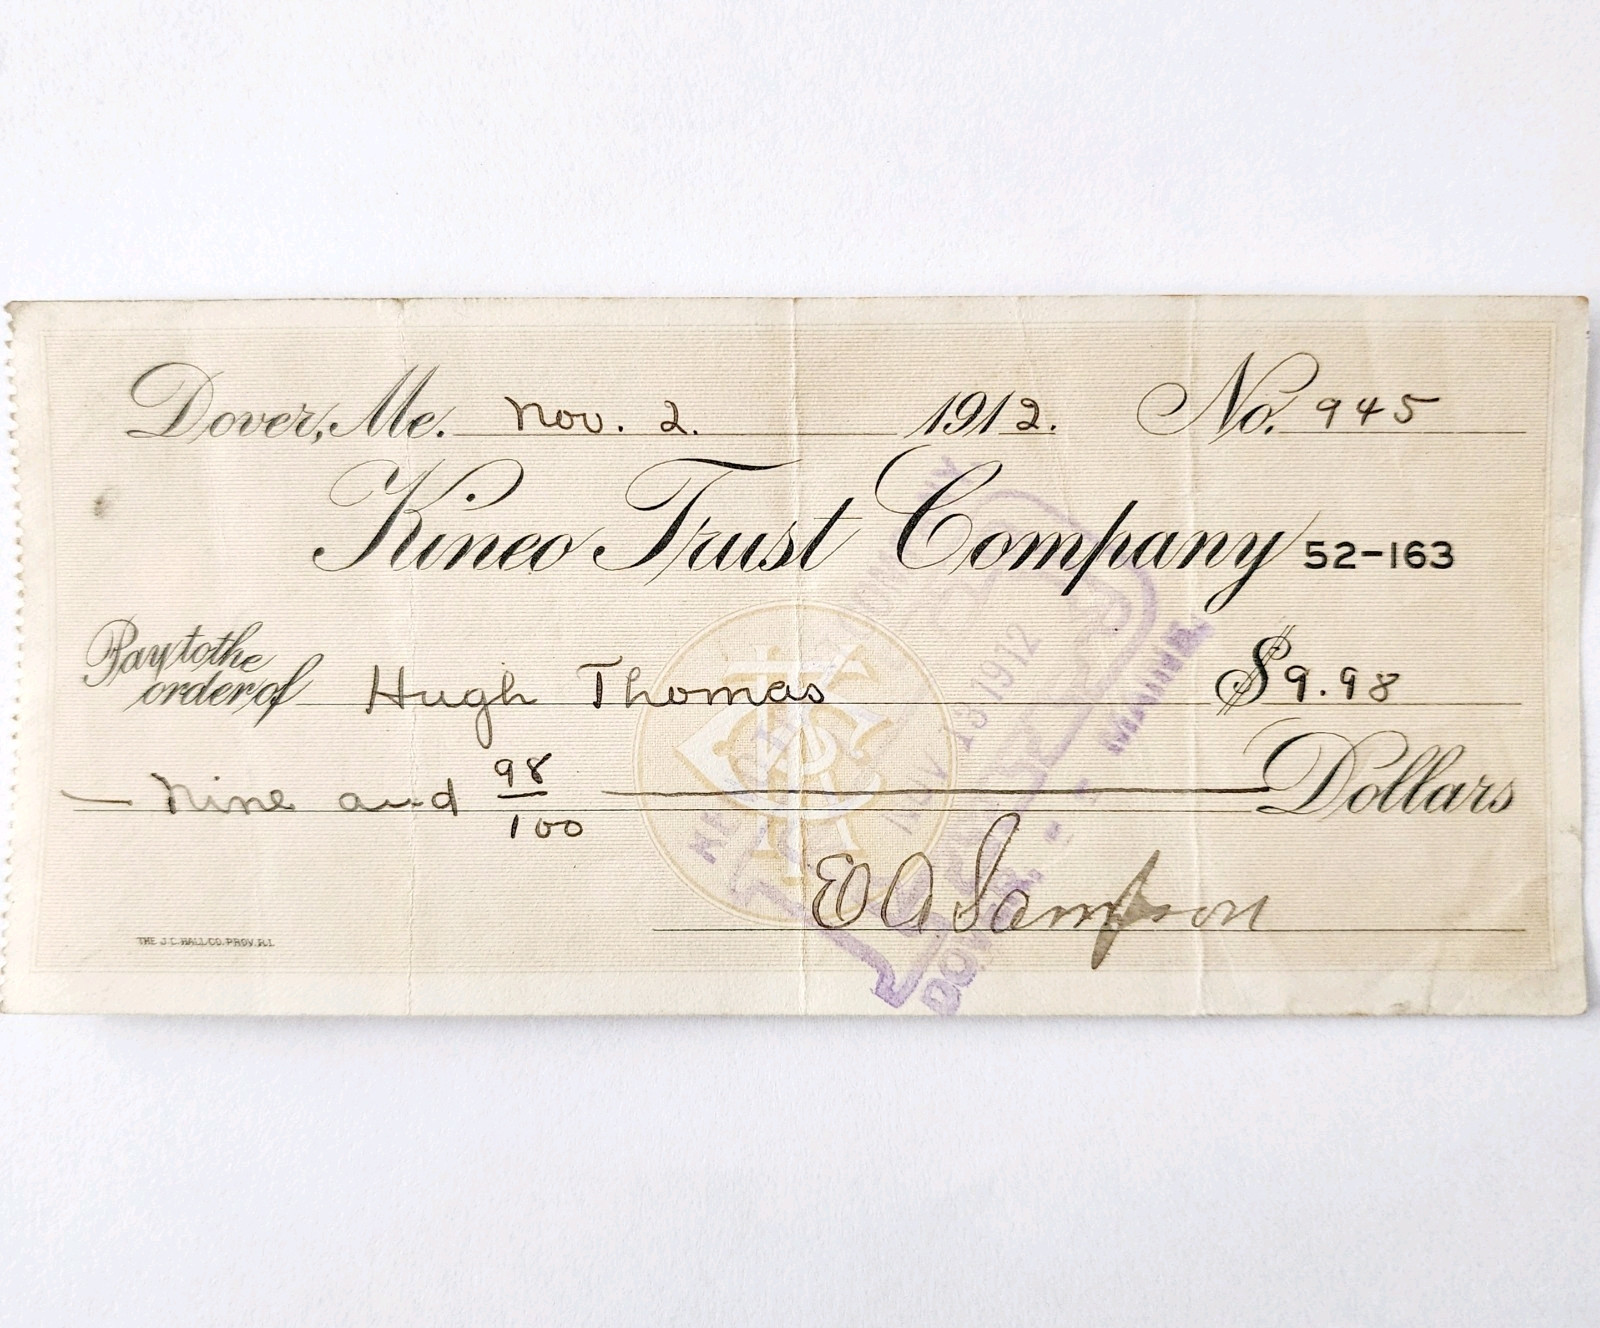 Dover, Me. Nov. 2. 1912. No. 945
Kineo Trust Company 52-163
Pay to the
order of Hugh Thomas $9.98
— Nine and 98/100 Dollars
E A Sampson
THE J.C. HALL CO. PROV. R.I.
KTC
PAID
NOV 13 1912
DOVER, MAINE.